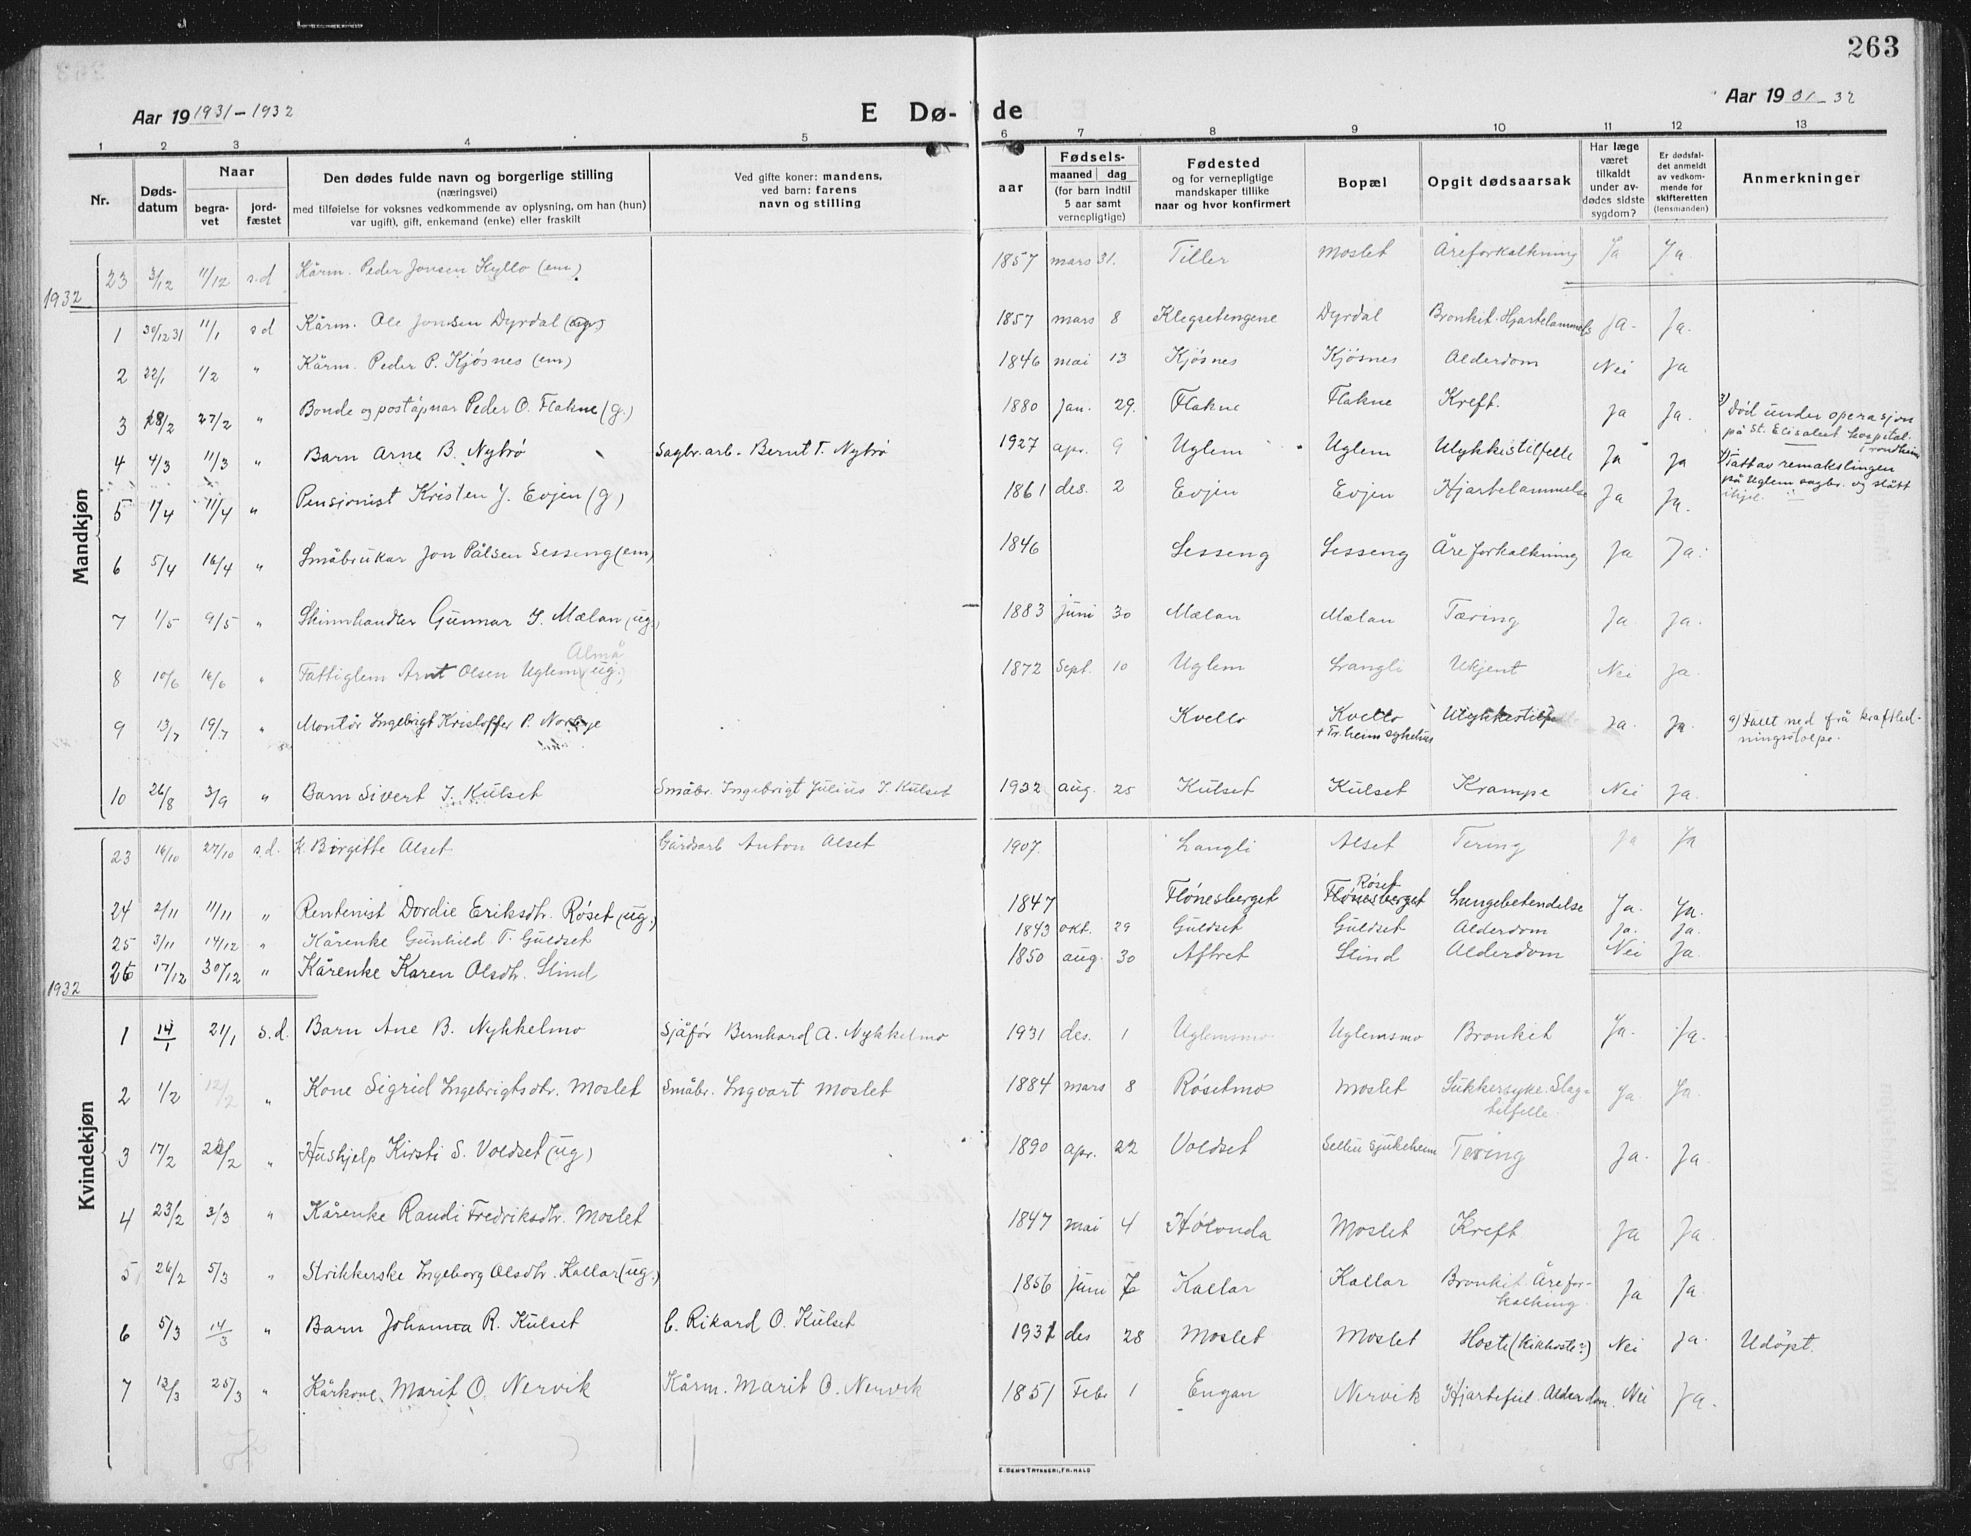 263
Aar 19 1931-1932
E Dø-de
Aar 19 31-32
1 2 3 4 5 6 7 8 9 10 11 12 13
Nr.
Døds-datum
Naar
begra-vet
jord-fæstet
Den dødes fulde navn og borgerlige stilling
(næringsvei)
med tilføielse for voksnes vedkommende av oplysning, om han (hun)
var ugift), gift, enkemand (enke) eller fraskilt
Ved gifte koner: mandens,
ved barn: farens
navn og stilling
aar
Fødsels-
maaned dag
(for barn indtil
5 aar samt
vernepligtige)
Fødested
og for vernepligtige
mandskaper tillike
naar og hvor konfirmert
Bopæl
Opgit dødsaarsak
Har læge
været
tilkaldt
under av-
dødes sidste
sygdom?
Er dødsfal-
det anmeldt
av vedkom-
mende for
skifteretten
(lensmanden)
Anmerkninger
Mandkjøn
23 3/12 11/12 s.d Kårm. Peder Jonsen Kyllo (em) 1857 mars 31. Tiller Moslet Åreforkalkning Ja Ja.
1932
1 30/12 31 11/1 s.d Kårm. Ole Jonsen Dyrdal 1857 mars 8 Klegsetengene Dyrdal Bronkit. Hjartelammelse Ja. Ja.
2 22/1 1/2 " Kårm. Peder P. Kjøsnes (em) 1846 mai 13 Kjøsnes Kjøsnes Alderdom Nei Ja
3 18/2 27/2 " Bonde og poståpnar Peder O. Flakne (g.) 1880 Jan. 29. Flakne Flakne Kreft. Ja Ja. 3) Død under operasjon
på St. Elisabet hospital.
Trondheim
4 4/3 11/3 " Barn Arne B. Nybrø Sagbr. arb. Bernt T. Nybrø 1927 apr. 9 Uglem Uglem Ulykkestilfelle Ja Ja Tatt av remakslingen
på Uglem sagbr. og slått
ihjel.
5 1/4 11/4 " Pensjonist Kristen J. Evjen (g) 1861 des. 2 Evjen Evjen Hjartelammelse Ja Ja.
6 5/4 16/4 " Småbrukar Jon Pålsen Sesseng (em) 1846 Sesseng Sesseng Åreforkalkning Ja Ja.
7 1/5 9/5 " Skinnhandler Gunnar J. Mælan (ug.) 1883 juni 30 Mælan Mælan Tæring Ja Ja.
Almå
8 10/6 16/6 " Fattiglem Arnt Olsen Uglem (ug.) 1872 Sept. 10 Uglem Langli Ukjent Nei Ja.
9 13/7 19/7 " Montør Ingebrigt Kristoffer P. Norbye Kvello Kvello
+ Tr.heim sykehus Ulykkestilfelle Ja. Ja. 9) Falt ned frå kraftled-
ningsstolpe.
10 26/8 3/9 " Barn Sivert I. Kulset Småbr. Ingebrigt Julius I. Kulset 1932 aug. 25 Kulset Kulset Krampe Nei Ja.
Kvindekjøn
23 16/10 27/10 s.d. K. Birgitte Alset Gårdsarb Anton Alset 1907. Langli Alset Tering Ja Ja
24 2/11 11/11 " Rentenist Dordie Eriksdtr. Røset (ug.) 1847 Flønesberget Røset
Flønesberget Lungebetendelse Ja. Ja.
25 3/11 14/12 " Kårenke Gunhild T. Guldset 1843 okt. 29 Guldset Guldset Alderdom Ja. Ja.
26 17/12 30/12 " Kårenke Karen Olsdtr. Slind 1850 aug. 30 Aftret Slind Alderdom Nei Ja.
1932
1 14/1 21/1 s.d. Barn Ane B. Nykkelmo Sjåfør Bernhard A. Nykkelmo 1931 des. 1 Uglemsmo Uglemsmo Bronkit Ja. Ja.
2 1/2 12/2 " Kone Sigrid Ingebrigtsdtr. Moslet Småbr. Ingvart Moslet 1884 mars 8 Røsetmo Moslet Sukkersyke. Slag-
tilfelle. Ja. Ja.
3 17/2 28/2 " Hushjelp Kirsti S. Voldset (ug) 1890 apr. 22 Voldset Selbu sjukeheim Tering Ja. Ja.
4 23/2 3/3 " Kårenke Randi Fredriksdtr. Moslet 1847 mai 4 Hølonda Moslet Kreft Ja Ja.
5 26/2 5/3 " Strikkerske Ingeborg Olsdtr. Kallar (ug.) 1856 juni 7 Kallar Kallar Bronkit Årefor-
kalkning. Ja Ja.
6 5/3 14/3 " Barn Johanna R. Kulset C. Rikard O. Kulset 1931 des 28 Moslet Moslet Hoste (Kikhoste?) Nei Ja. Udøpt.
7 13/3 25/3 " Kårkone Marit O. Nervik Kårm. Marit O. Nervik 1851 Febr 1 Engan Nervik Hjartefeil. Alderdom. Nei Ja.
E. SEM'S TRYKKERI, FR.HALD